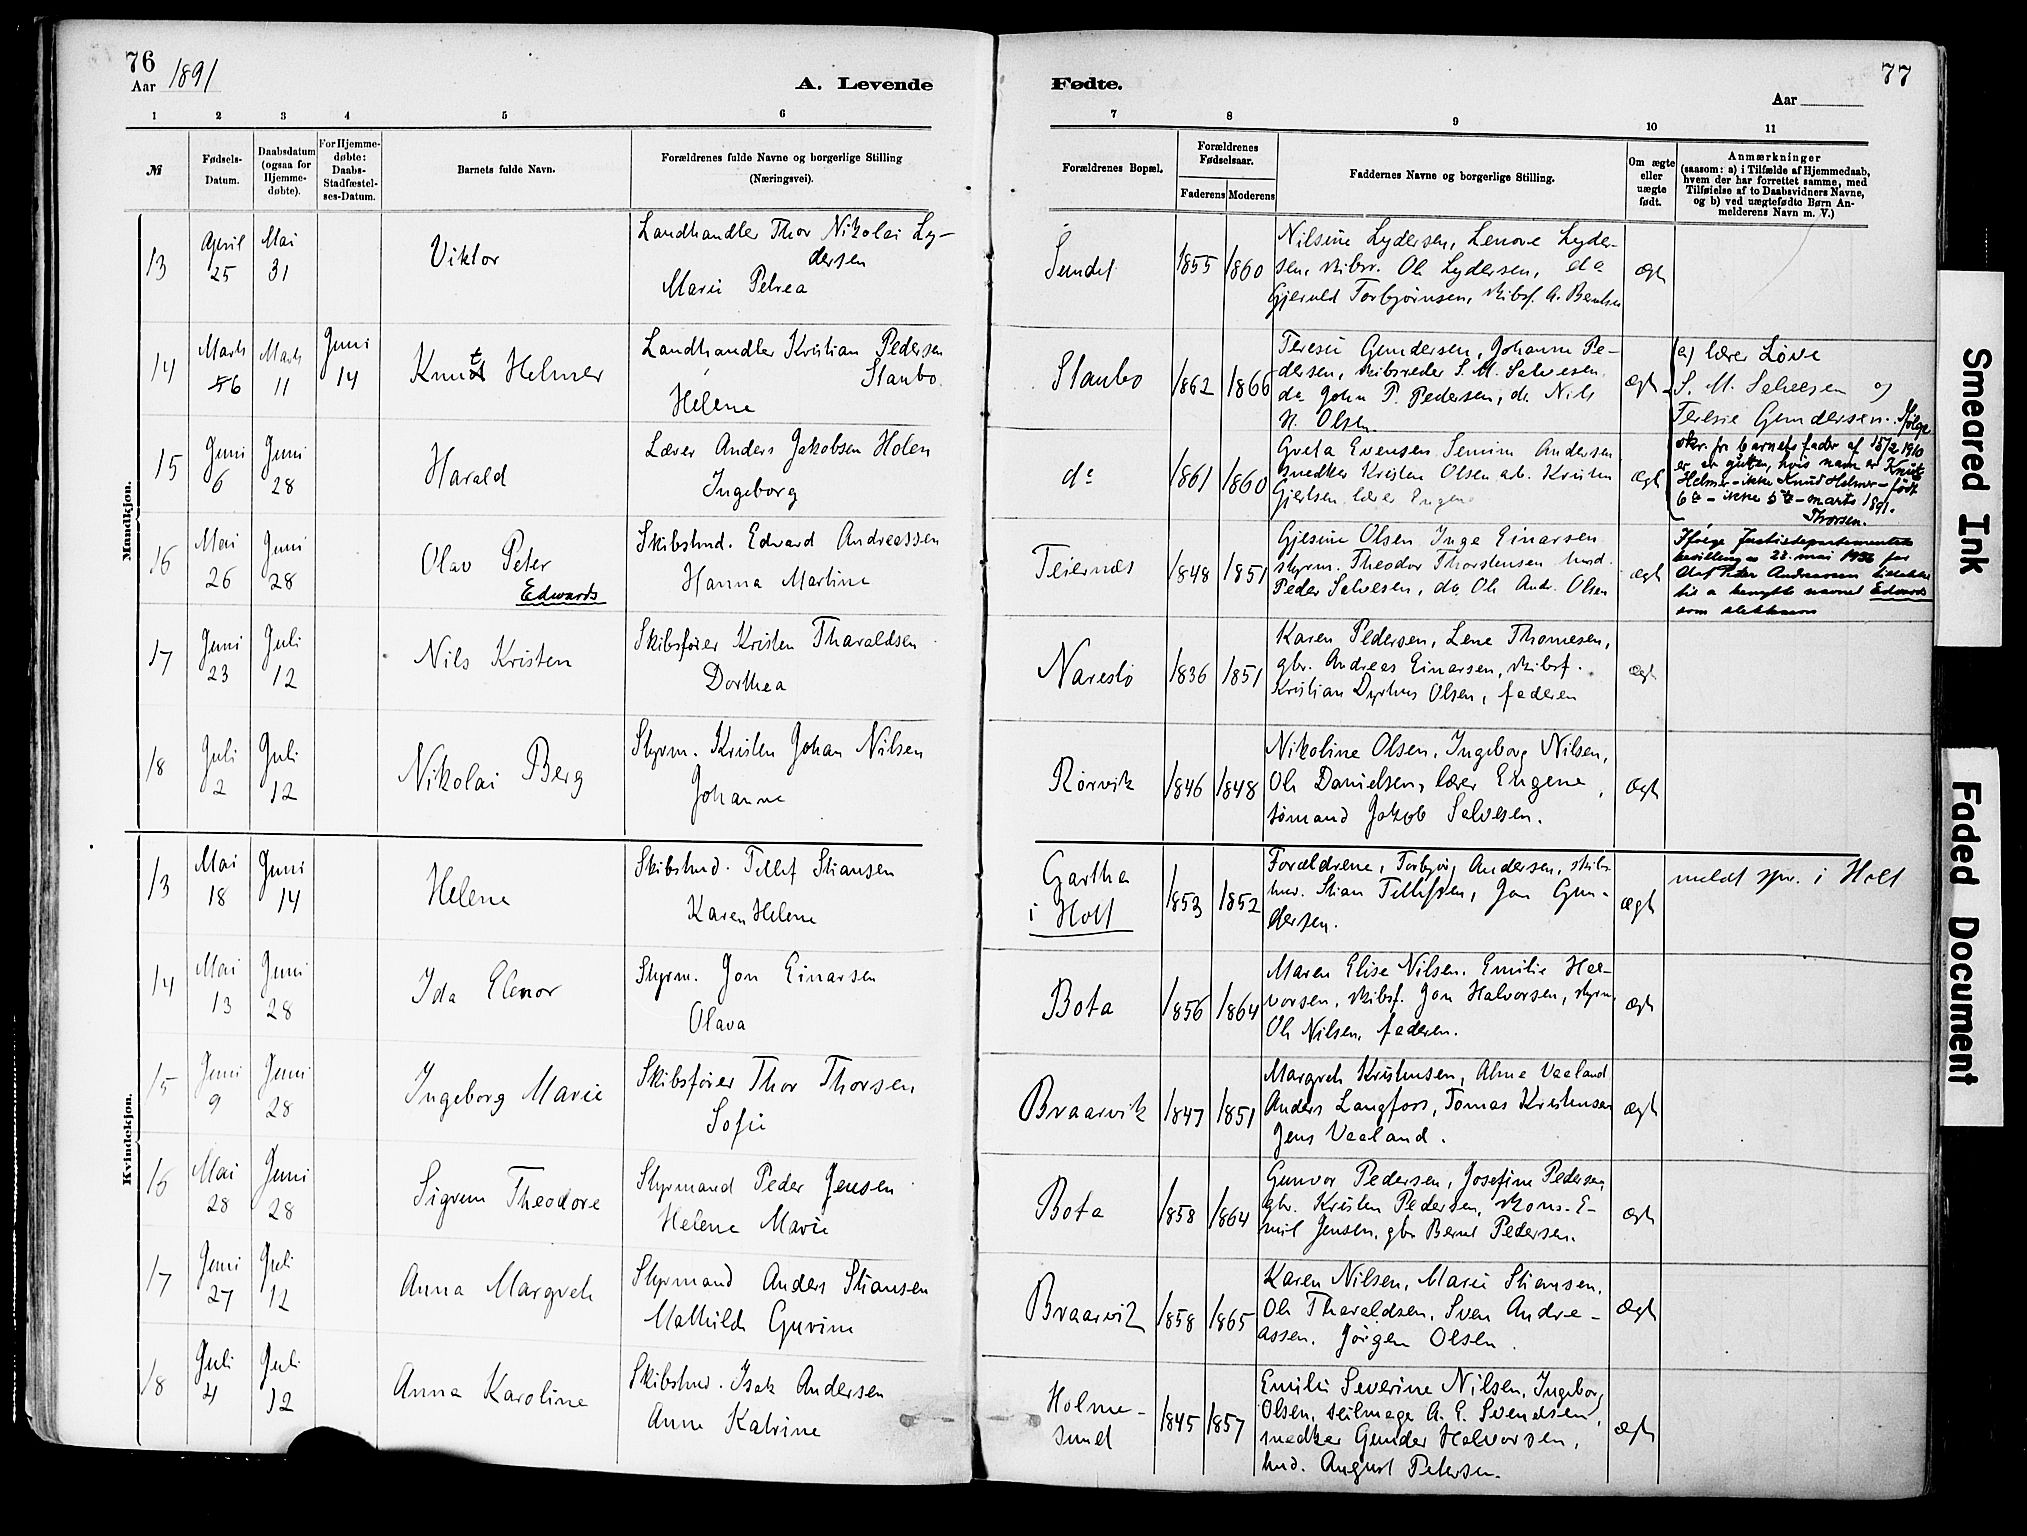 76
Aar 1891
A. Levende
1 2 3 4 5 6
№
Fødsels-
Datum.
Daabsdatum
(ogsaa for
Hjemme-
døbte).
For Hjemme-
døbte:
Daabs-
Stadfæstel-
ses-Datum.
Barnets fulde Navn.
Forældrenes fulde Navne og borgerlige Stilling
(Næringsvei).
Mandkjøn.
13
April
25
Mai
31
Viktor
Landhandler Thor Nikolai Ly-
dersen
Marie Petrea
14
Marts
6
Marts
11
Juni
14
Knut Helmer
Landhandler Kristian Pedersen
Staubo.
Helene
15
Juni
6
Juni
28
Harald
Lærer Anders Jakobsen Holen
Ingeborg
16
Mai
26
Juni
28
Olav Peter
Edwards
Skibstmd. Edvard Andreassen
Hanna Martine
17
Juni
23
Juli
12
Nils Kristen
Skibsfører Kristen Tharaldsen
Dorthea
18
Juli
2
Juli
12
Nikolai Berg
Styrm. Kristen Johan Nilsen
Johanne
Kvindekjøn.
13
Mai
18
Juni
14
Helene
Skibstmd. Tellef Stiansen
Karen Helene
14
Mai
13
Juni
28
Ida Elenor
Styrm. Jon Einarsen
Olava
15
Juni
9
Juni
28
Ingeborg Marie
Skibsfører Thor Thorsen
Sofie
16
Mai
28
Juni
28
Sigrun Theodore
Styrmand Peder Jensen
Helene Marie
17
Juni
27
Juli
12
Anna Margreth
Styrmand Anders Stiansen
Mathilde Gurine
18
Juli
4
Juli
12
Anna Karoline
Skibstmd. Isak Andersen
Anne Katrine
77
Fødte.
Aar
7 8 9 10 11
Forældrenes Bopæl.
Forældrenes
Fødselsaar.
Faderens Moderens
Faddernes Navne og borgerlige Stilling.
Om ægte
eller
uægte
født.
Anmærkninger
(saasom: a) i Tilfælde af Hjemmedaab,
hvem der har forrettet samme, med
Tilføielse af to Daabsvidners Navne,
og b) ved uægtefødte Børn An-
melderens Navn m. V.)
Sundet
1855 1860
Nilsine Lydersen, Lenore Lyder-
sen, skibsr. Ole Lydersen, do
Gjeruld Torbjørnsen, skibsf. A. Berntsen
ægt
Staubo
1862 1866
Teresie Gundersen, Johanne Pe-
dersen, skibsreder S. M. Salvesen
do John P. Pedersen, do Nils
N. Olsen.
ægt
a) lærer Løve
S. M. Salvesen og
Teresie Gundersen. Ifølge
skr. fra barnets fader af 15/2 1910
er gutten, hvis navn er Knut
Helmer – ikke Knud Helmer – født
6te – ikke 5te – marts 1891.
Thorsen.
do
1861 1860
Greta Evensen, Semine Andersen
snedker Kristen Olsen arb. Kristen
Gjertsen, lærer Eugene
ægt
Teiernæs
1848 1851
Gjesine Olsen Inge Einarsen
styrm. Theodor Thorstensen tmd.
Peder Salvesen, do Ole Andr. Olsen
ægt
Ifølge Justisdepartementets
bevilling av 22. mai 1936 har
Olaf Peter Andreassen tillatelse
til å benytte navnet Edwards
som slektsnavn
Narestø
1836 1851
Karen Pedersen, Lene Thomesen,
gbr. Andreas Einarsen, skibsf.
Kristian Dyrhus Olsen, faderen
ægt
Rørvik
1846 1848
Nikoline Olsen, Ingeborg Nilsen,
Ole Danielsen, lærer Eugene,
sømand Jakob Salvesen.
ægt
Gartha
i Holt
1853 1852
Forældrene, Torbjør Andersen, skibs-
tmd. Stian Tellefsen, Jon Gun-
dersen.
ægt
meldt spr. i Holt
Bota
1856 1864
Maren Elise Nilsen, Emilie Hal-
vorsen, skibsf. Jon Halvorsen, styrm.
Ole Nilsen, faderen.
ægt
Braarvik
1847 1851
Margreth Kristensen, Alme Vaaland
Anders Langfoss, Tomas Kristensen
Jens Vaaland.
ægt
Bota
1858 1864
Gunvor Pedersen, Josefine Pedersen,
gbr. Kristen Pedersen, skoms. E-
mil Jensen, gbr Bernt Pedersen.
ægt
Braarvik
1858 1865
Karen Nilsen, Marie Stiansen,
Ole Tharaldsen, Sven Andre-
assen, Jørgen Olsen.
ægt
Holme-
sund
1845 1857
Emilie Severine Nilsen, Ingeborg
Olsen, seilmager A. E. Svendsen,
snedker Gunder Halvorsen,
tmd. August Petersen.
ægt
Smeared Ink
Faded Document